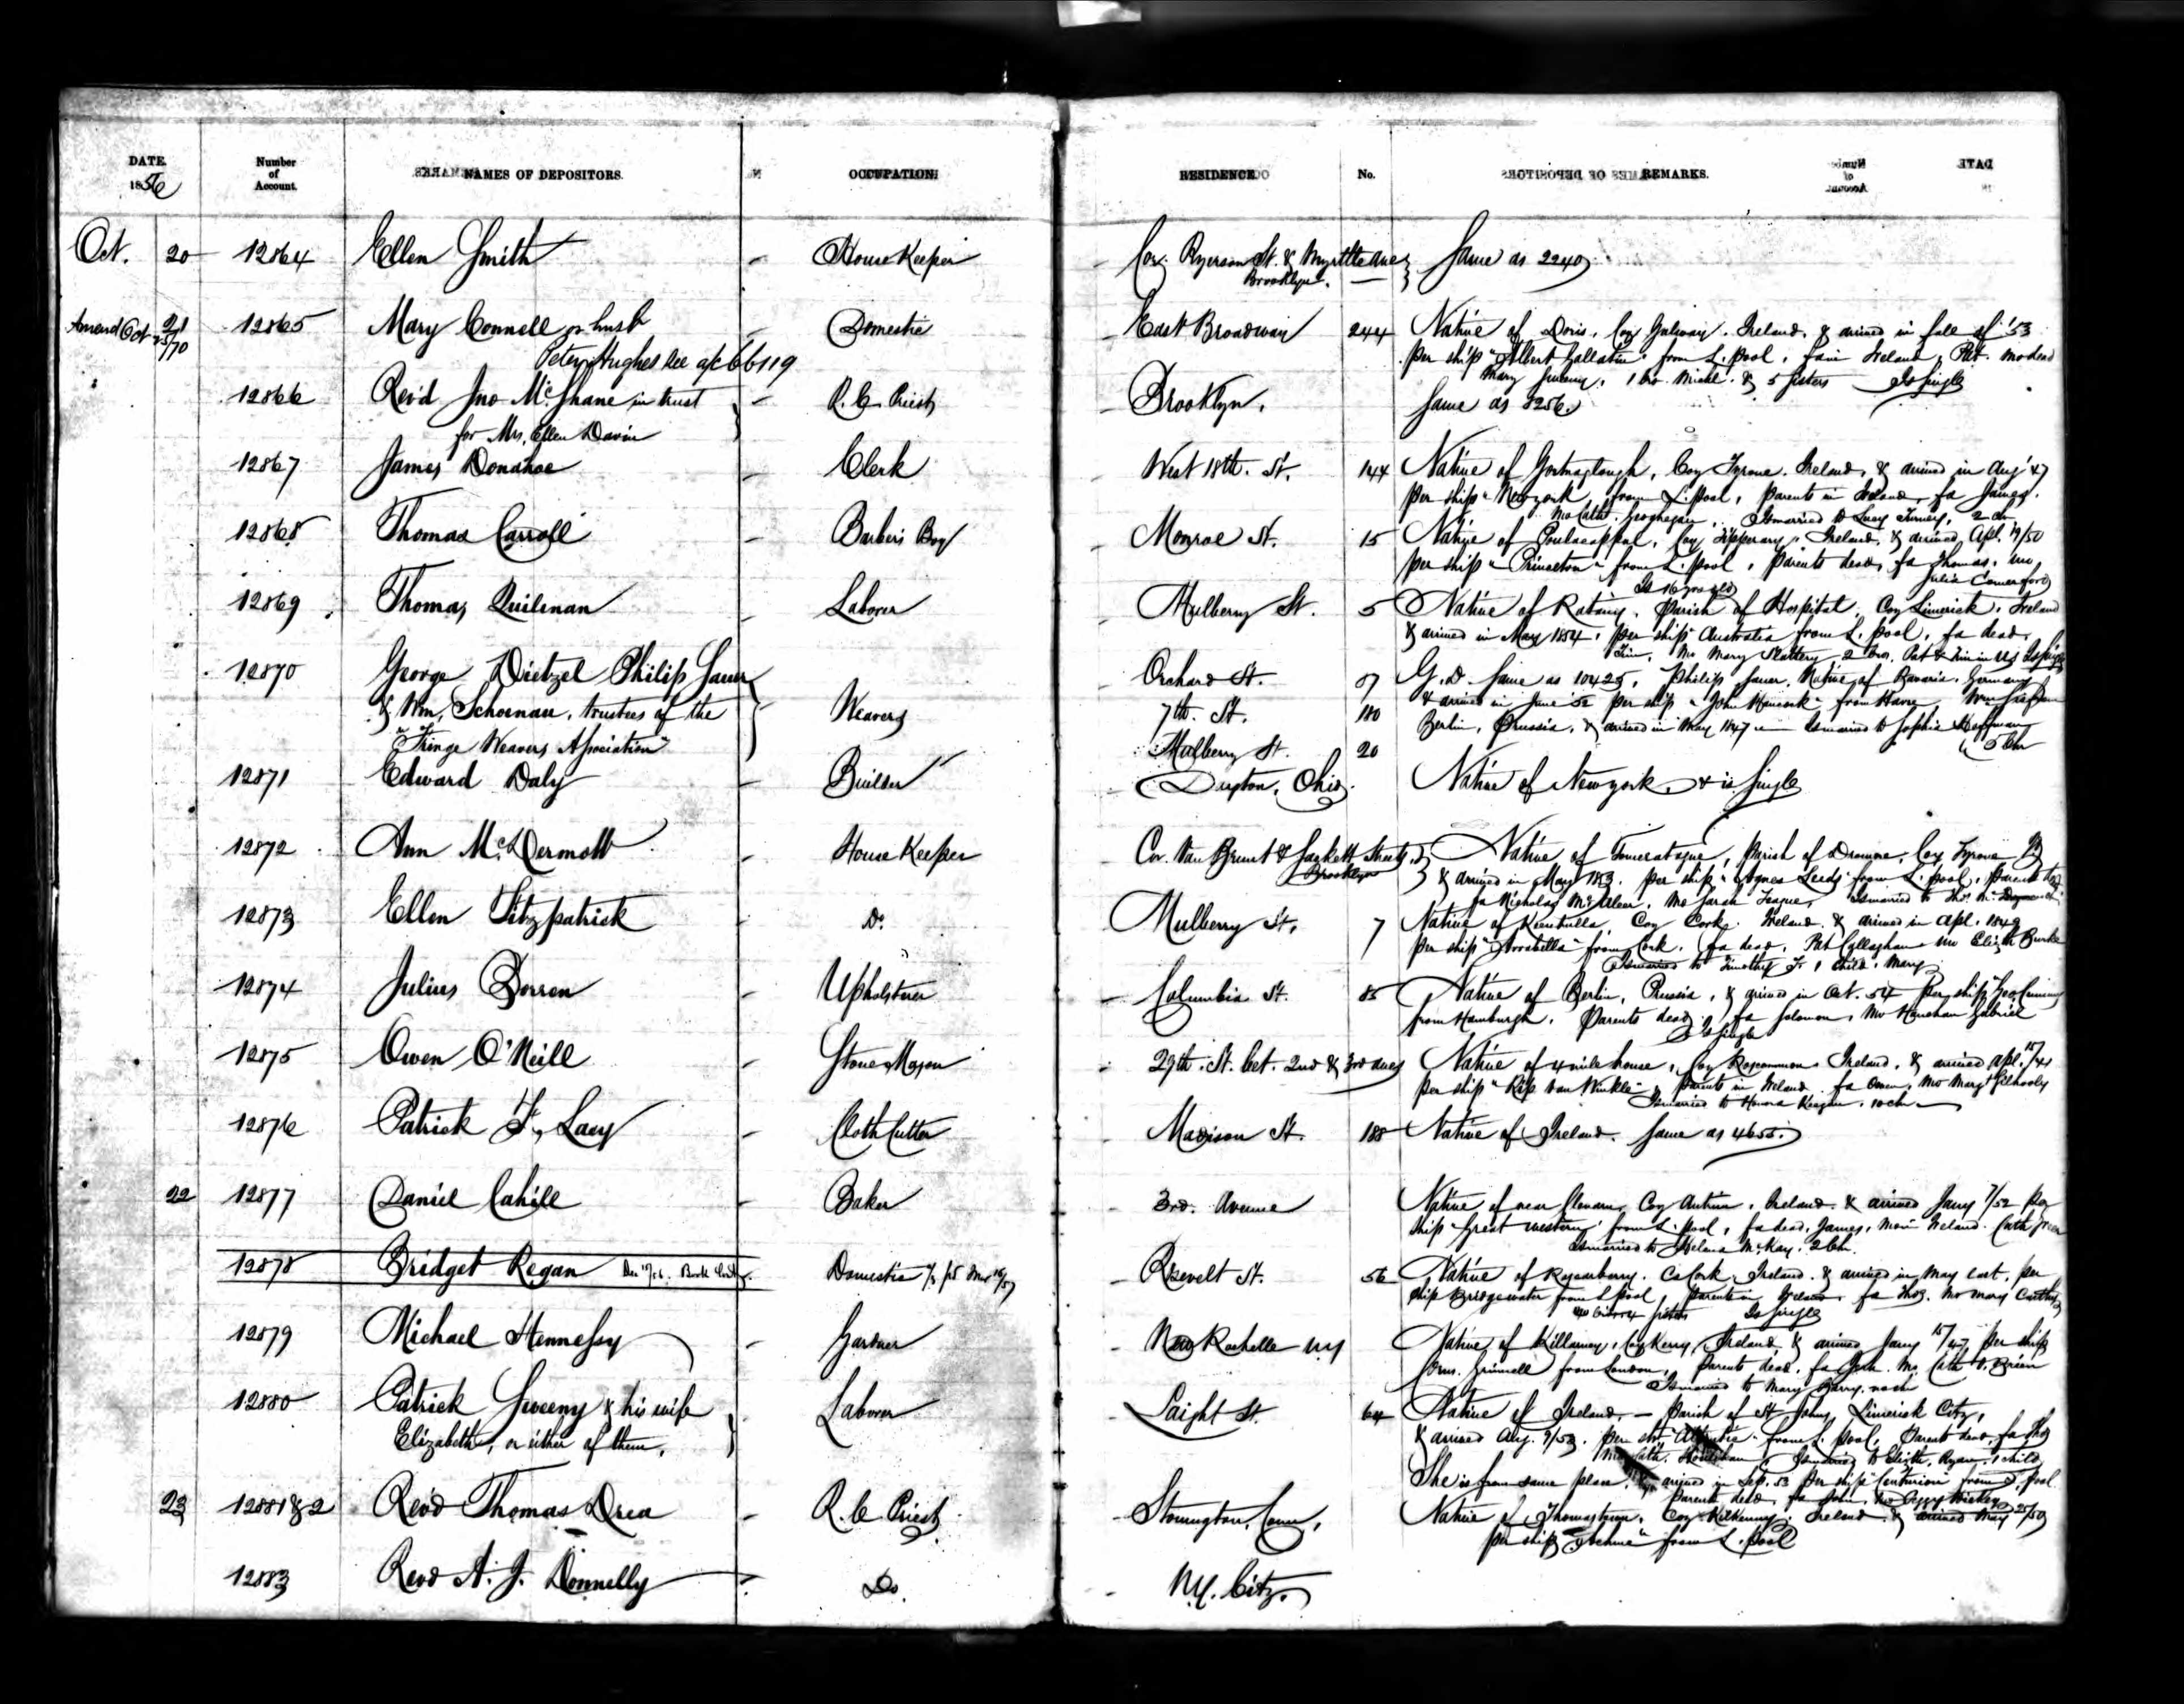 DATE. 1856
Number of Account.
NAMES OF DEPOSITORS.
OCCUPATION.
RESIDENCE.
No.
REMARKS.
Oct. 20 12864 Ellen Smith - House Keeper - Cor. Ryerson St. & Myrtle Ave Same as 2240
Brooklyn.
Amend Oct 21 12865 Mary Connell or husb - Domestic - East Broadway 244 Native of Doris, Coy Galway. Ireland. & arrived in fall of '53
25/70 Peter Hughes see a/c 66119 per ship "Albert Gallatin" from L.pool, fa in Ireland, Pat. mo dead
Mary , 1 bro. Michl. & 5 sisters Is single
12866 Rev'd Jno McShane in trust - R. C. Priest - Brooklyn. Same as 8256.
for Mrs. Ellen Davin
12867 James Donahoe - Clerk - West 18th. St. 144 Native of Gortnaglough, Coy Tyrone. Ireland, & arrived in Aug '47
per ship "Newyork" from L.pool, parents in Ireland, fa James.
Mo Cath. Geoghegan. Is married to Lucy , 2 ch
12868 Thomas Carroll - Barber's Boy - Monroe St. 15 Native of , Coy Tipperary. Ireland, & arrived Apl. 19/50
per ship "Princeton" from L.pool, parents dead, fa Thomas, mo
Is 16 yrs old Julia Comerford
12869 Thomas Quilenan - Laborer - Mulberry St. 5 Native of , Parish of Hospital, Coy Limerick. Ireland
& arrived in May 1854, per ship Australia from L.pool, fa dead,
Tim, Mo Mary Slattery 2 bros. Pat & Tim in US Is single
12870 George Dietzel Philip Sauer Orchard St. 87 G.D. same as 10425, Philip Sauer, Native of Bavaria, Germany
& Wm. Schoenau, trustees of the Weavers 7th. St. 180 & arrived in June '52 per ship "John Hancock" from Havre, Wm
"Fringe Weavers Association" Mulberry St. 20 Berlin, Prussia, & arrived in May 1847 Is married to Sophia Hoffman
5 Ch
12871 Edward Daly - Builder - Dayton, Ohio. Native of Newyork, & is single
12872 Ann McDermott - House Keeper - Cor. Van Brunt & Sackett Streets, Native of , Parish of Dromore, Coy Tyrone
Brooklyn & arrived in May 1853. per ship "Agnes Leeds" from L.pool, parents
fa Nicholas McAleer, Mo Sarah Teague, Is married to Thos. McDermott
12873 Ellen Fitzpatrick - Do. Mulberry St. 7 Native of , Coy Cork. Ireland & arrived in Apl. 1849
per ship "Arrabella" from Cork. fa dead, Pat Callaghan mo Elizth Burke
Is married to Timothy F. 1 child, Mary
12874 Julius Borren - Upholsterer - Columbia St. 85 Native of Berlin, Prussia, & arrived in Oct. 54 per ship
from Hamburgh. Parents dead, fa Solomon, Mo Gabriel
Is single
12875 Owen O'Neill - Stone Mason - 29th. St. bet. 2nd & 3rd aves Native of 4 mile house, Coy Roscommon. Ireland, & arrived Apl. 15/44
per ship "Rip Van Winkle" parents in Ireland. fa Owen, Mo Margt Gilhooly
Is married to Honora Keegan. 10 ch
12876 Patrick F. Lacy - Cloth Cutter - Madison St. 188 Native of Ireland. Same as 4655.
22 12877 Daniel Cahill - Baker - 3rd. Avenue Native of near , Coy Antrim, Ireland. & arrived Jany 7/52 per
ship "Great Western" from L.pool, fa dead, James, mo in Ireland. Cath
Is married to Helena McKay. 2 Ch.
12878 Bridget Regan Domestic - Rosevelt St. 56 Native of Roscarberry. Co Cork. Ireland. & arrived in May last, per
ship Bridgewater from L pool, parents in Ireland fa Thos. mo Mary Carthy
sisters Is single
12879 Michael Hennessy - Gardner - New Rochelle N.Y Native of Killarney, Coy Kerry, Ireland, & arrived Jany 15/47 per ship
Corns. Grinnell from London, parents dead. fa , Mo Cath O.Brien
Is married to Mary Barry. no ch
12880 Patrick Sweeny & his wife - Laborer - Laight St. 64 Native of Ireland, - Parish of St Johns, Limerick City,
Elizabeth, or either of them. & arrived Aug. 9/53. per from L. pool, Parents dead fa Thos
Mo Cath. Houlihan Is married to Elizth. Ryan. 1 child
She is from same place, & arrived in Sep. 53 per ship "Centurion" from L.pool
parents dead fa John, Mo Peggy
23 12881 & 2 Rev'd Thomas Drea - R. C. Priest - Stonington, Conn, Native of Thomastown, Coy Kilkenny. Ireland. & arrived May 25/50
per ship from L. pool
12883 Revd A. J. Donnelly - Do. - N.Y. City.